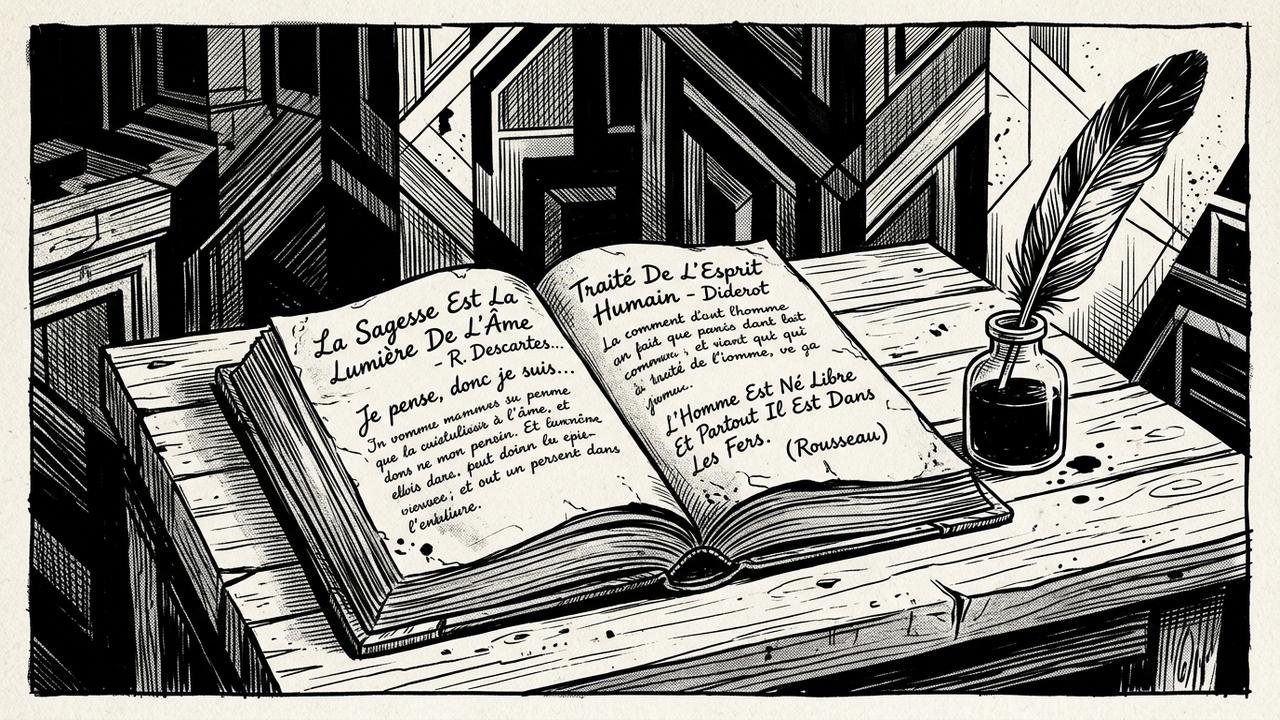 La Sagesse Est La
Lumière De L'Âme
- R. Descartes...
Je pense, donc je suis...
In vomme mammes su penme
que la à l'âme, et
dons ne mon pensin. Et
ellois dare, peut doinn lu epie-
; et out un persent dans
l'
Traité De L'Esprit
Humain - Diderot
La comment d'ant l'homme
an faid que panis dant lait
; et viant qui qui
de l'iomme, ve ga
L'Homme Est Né Libre
Et Partout Il Est Dans
Les Fers.
(Rousseau)